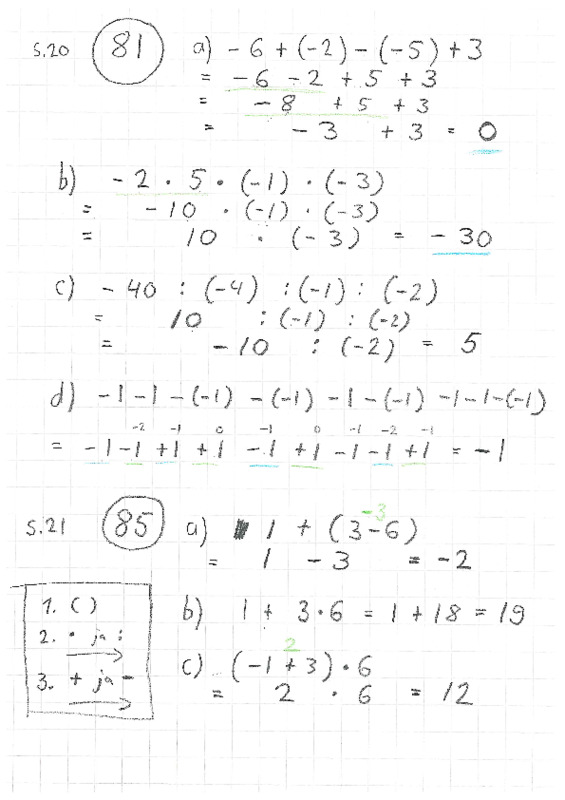 s.20 81 a) -6 + (-2) - (-5) + 3
= -6 - 2 + 5 + 3
= -8 + 5 + 3
= -3 + 3 = 0
b) -2 · 5 · (-1) · (-3)
= -10 · (-1) · (-3)
= 10 · (-3) = -30
c) -40 : (-4) : (-1) : (-2)
= 10 : (-1) : (-2)
= -10 : (-2) = 5
d) -1-1-(-1) -(-1) -1-(-1) -1-1-(-1)
-2 -1 0 -1 0 -1 -2 -1
= -1-1+1+1 -1 +1-1-1+1 = -1
s.21 85 a) 1 + (3-6)
-3
= 1 - 3 = -2
1. ( )
2. · ja :
3. + ja -
b) 1 + 3·6 = 1 + 18 = 19
2
c) (-1+3)·6
= 2 · 6 = 12